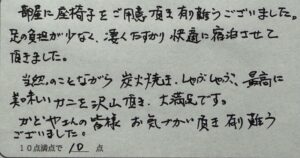 部屋に座椅子をご用意頂き有り難うございました。
足の負担が少なく、凄くたすかり快適に宿泊させて
頂きました。
当然のことながら炭火焼き、しゃぶしゃぶ、最高に
美味しいカニを沢山頂き、大満足です。
かどやさんの皆様 お気づかい頂き有り難う
ございました。
10点満点で 10 点